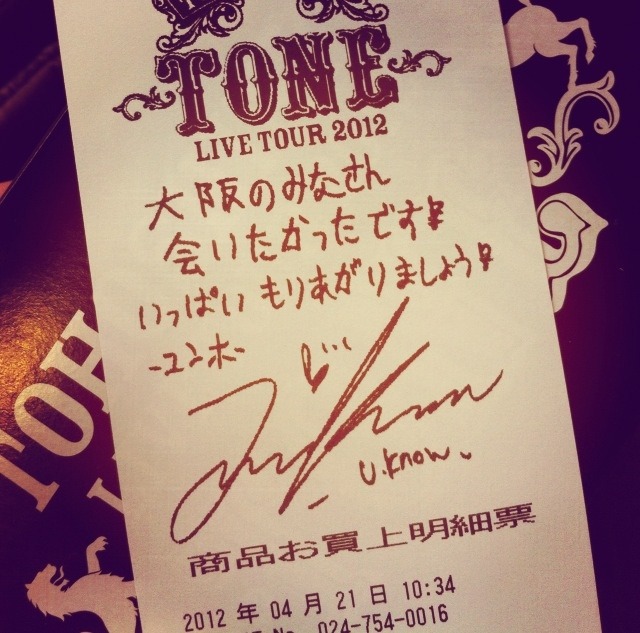 TONE
LIVE TOUR 2012
大阪のみなさん
会いたかったです!!
いっぱい もりあがりましょう!!
-ユンホ-
U.Know.
商品お買上明細票
2012 年 04 月 21 日 10:34
No. 024-754-0016
TOH